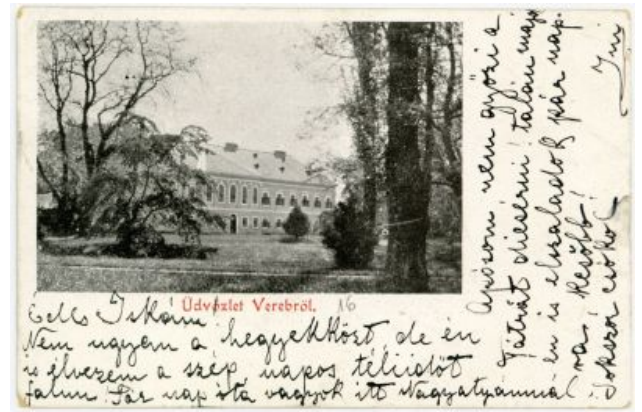 Üdvözlet Verebről. 16
Edes Iskám!
Nem ugyan a hegyekközt, de én
is élvezem a szép napos téliidőt
falun. Pár nap óta vagyok itt Nagyatyámnál.
Apósom nem győzi a
Tátrát dicsérni, talán majd
én is elszaladok pár nap-
ra, később!
Sokszor csókol